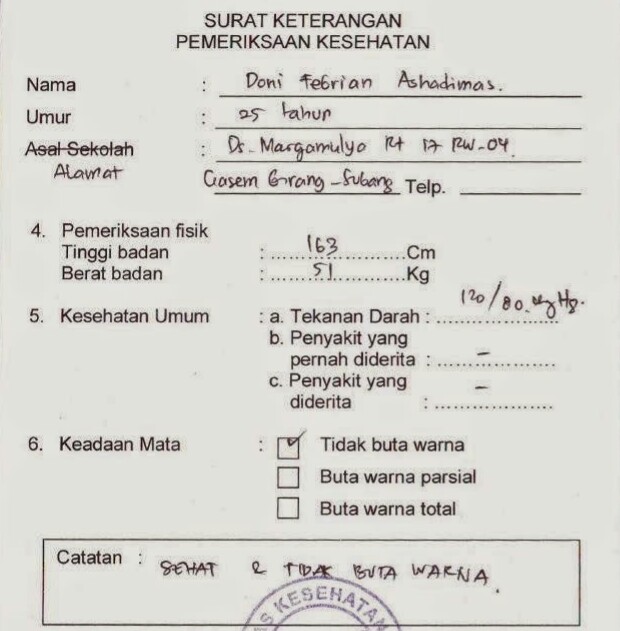 SURAT KETERANGAN
PEMERIKSAAN KESEHATAN
Nama : Doni Febrian Ashadimas.
Umur : 25 tahun
Asal Sekolah : Ds. Margamulyo Rt 17 RW-04.
Alamat Gasem Grang - Subang Telp.
4. Pemeriksaan fisik
Tinggi badan : 163 Cm
Berat badan : 51 Kg
5. Kesehatan Umum : a. Tekanan Darah : 120/80 mgHg.
b. Penyakit yang
pernah diderita : -
c. Penyakit yang -
diderita :
6. Keadaan Mata : Tidak buta warna
Buta warna parsial
Buta warna total
Catatan : SEHAT & TIDAK BUTA WARNA.
KESEHATAN